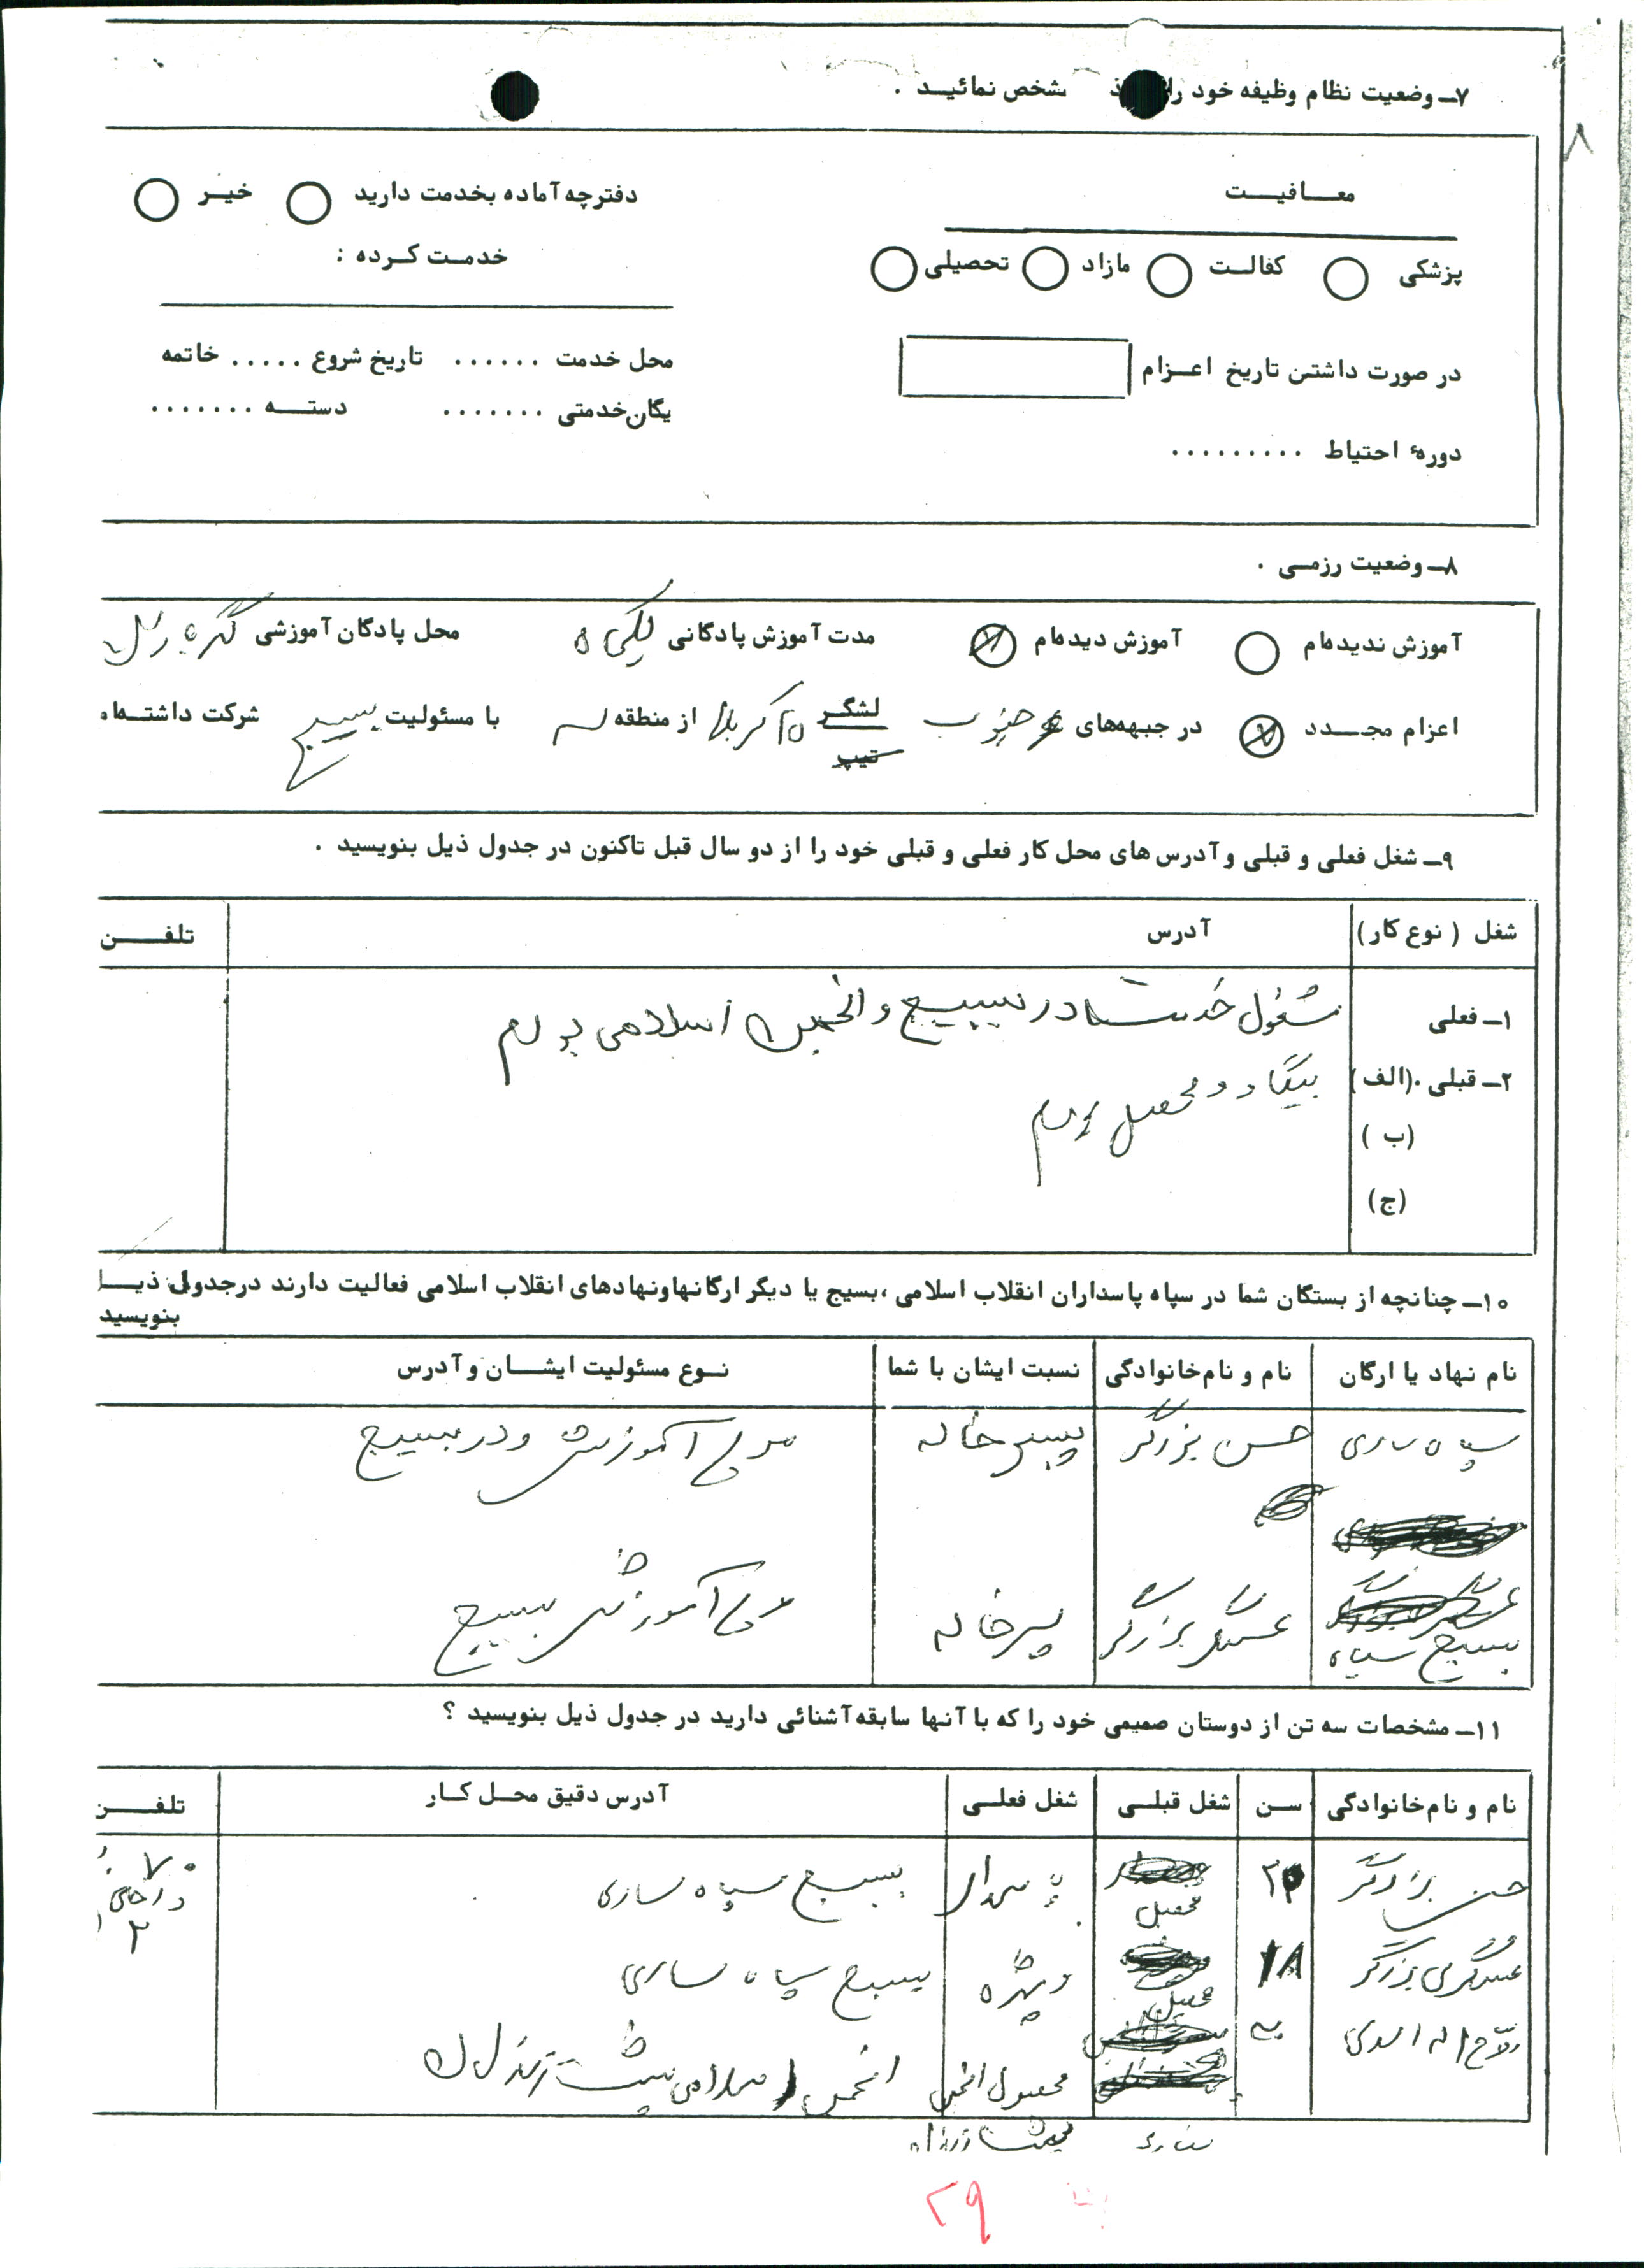 ۷ـ وضعیت نظام وظیفه خود را ذ مشخص نمائیـد .
۸
معـافیـت
دفترچه آماده بخدمت دارید خیـر
پزشکی کفالـت مازاد تحصیلی
خدمـت کـرده :
در صورت داشتن تاریخ اعـزام
محل خدمت ...... تاریخ شروع ..... خاتمه
یگان خدمتی ....... دستـه .......
دورهٔ احتیاط .........
۸ـ وضعیت رزمـی .
آموزش ندیده‌ام آموزش دیده‌ام مدت آموزش پادگانی یکماه محل پادگان آموزشی
اعزام مجـدد در جبهه‌های جنوب لشگـر ۲۵ کربلا از منطقه با مسئولیت بسیج شرکت داشتـه‌ام
تیپ
۹ـ شغل فعلی و قبلی و آدرس های محل کار فعلی و قبلی خود را از دو سال قبل تاکنون در جدول ذیل بنویسید .
شغل ( نوع کار) آدرس تلفـن
۱ـ فعلی مشغول خدمت در بسیج و انجمن اسلامی بودم
۲ـ قبلی .(الف) بیکار و محصل بودم
(ب )
(ج)
۱۰ـ چنانچه از بستگان شما در سپاه پاسداران انقلاب اسلامی ،بسیج یا دیگر ارگانهاونهادهای انقلاب اسلامی فعالیت دارند درجدول ذیـل
بنویسید
نام نهاد یا ارگان نام و نام‌خانوادگی نسبت ایشان با شما نـوع مسئولیت ایشـان و آدرس
سپاه ساری حسن بزرگر پسرخاله مربی آموزش و در بسیج
بسیج سپاه عسگر بزرگر پسرخاله مربی آموزش بسیج
۱۱ـ مشخصات سه تن از دوستان صمیمی خود را که با آنها سابقه آشنائی دارید در جدول ذیل بنویسید ؟
نام و نام‌خانوادگی سـن شغل قبلـی شغل فعلـی آدرس دقیق محـل کـار تلفـن
حسن بزرگر محصل پاسدار بسیج سپاه ساری ۷۰
داخلی
۲
عسگری بزرگر ۱۸ محصل ویژه بسیج سپاه ساری
روح اله اسدی انجمن اسلامی
۲۹